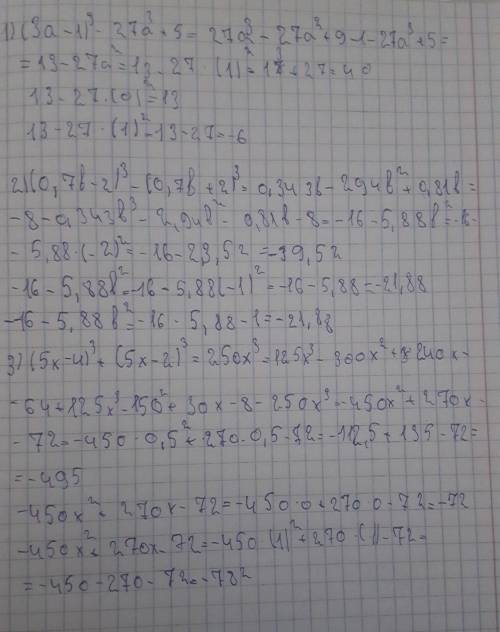 1) (3a-1)³ - 27a³ + 5 = 27a³ - 27a² + 9 - 1 - 27a³ + 5 =
= 13 - 27a² = 13 - 27 · (1)² = 13 + 27 = 40
13 - 27 · (0)² = 13
13 - 27 · (1)² = 13 - 27 = -6
2) (0,7b - 2)³ - (0,7b + 2)³ = 0,343b - 2,94b² + 0,81b =
- 8 - 0,343b³ - 2,94b² - 0,81b - 8 = -16 - 5,88b² = -16 -
- 5,88 · (-2)² = -16 - 23,52 = -39,52
-16 - 5,88b² = -16 - 5,88(-1)² = -16 - 5,88 = -21,88
-16 - 5,88b² = -16 - 5,88 - 1 = -21,88
3) (5x-4)³ + (5x-2)³ = 250x³ = 125x³ - 300x² + 240x -
- 64 + 125x³ - 150² + 30x - 8 - 250x³ = -450x² + 270x -
- 72 = -450 · 0,5² + 270 · 0,5 - 72 = -112,5 + 135 - 72 =
= -495
-450x² + 270x - 72 = -450 · 0 + 270 · 0 - 72 = -72
-450x² + 270x - 72 = -450 (1)² + 270 · (1) - 72 =
= -450 - 270 - 72 = -782